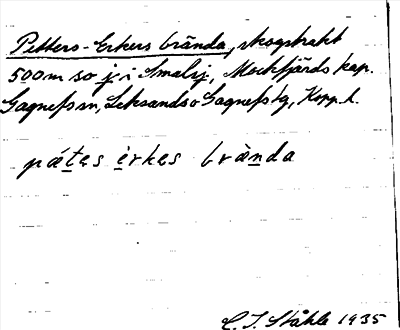 Petters-Erkers brända, skogstrakt
500m so j i Smalsj, Mockfjärds kap.
Gagnefs sn, Leksands o Gagnefs tg, Kopp. l.
pátes èrkes brànda
C. I. Ståhle 1935